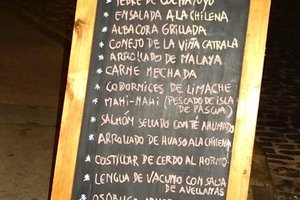 * PEBRE DE COCHAYUYO
* ENSALADA A LA CHILENA
* ALBACORA GRILLADA
* CONEJO DE LA VIÑA CATRALA
* ARROLLADO DE MALAYA
* CARNE MECHADA
* CODORNICES DE LIMACHE
* MAHI-MAHI (PESCADO DE ISLA DE PASCUA)
* SALMÓN SELLADO CON TÉ AHUMADO
* ARROLLADO DE HUASO A LA CHILENA
* COSTILLAR DE CERDO AL HORNO
* LENGUA DE VACUNO CON SALSA
DE AVELLANAS
* OSOBUCO